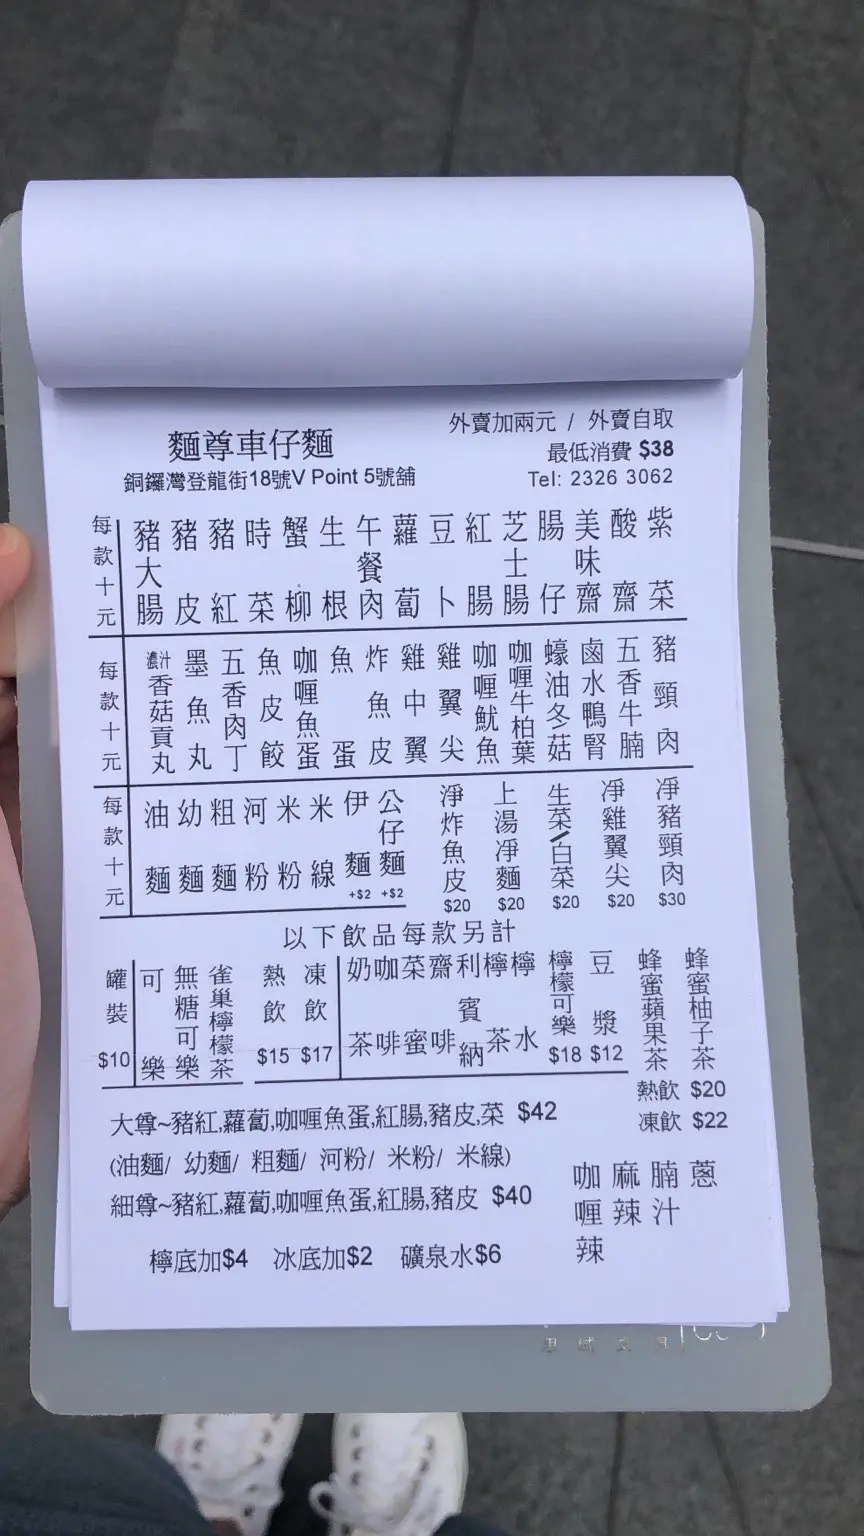 麵尊車仔麵
銅鑼灣登龍街18號V Point 5號舖
外賣加兩元 / 外賣自取
最低消費 $38
Tel: 2326 3062
每款十元
豬大腸
豬皮
豬紅
時菜
蟹柳
生根
午餐肉
蘿蔔
豆卜
紅腸
芝士腸
腸仔
美味齋
酸齋
紫菜
每款十元
濃汁香菇貢丸
墨魚丸
五香肉丁
魚皮餃
咖喱魚蛋
魚蛋
炸魚皮
雞中翼
雞翼尖
咖喱魷魚
咖喱牛柏葉
蠔油冬菇
鹵水鴨腎
五香牛腩
豬頸肉
每款十元
油麵
幼麵
粗麵
河粉
米粉
米線
伊麵 +$2
公仔麵 +$2
淨炸魚皮 $20
上湯淨麵 $20
生菜/白菜 $20
凈雞翼尖 $20
凈豬頸肉 $30
以下飲品每款另計
罐裝 $10
可樂
無糖可樂
雀巢檸檬茶
熱飲 $15
凍飲 $17
奶茶
咖啡
菜蜜
齋啡
利賓納
檸茶
檸水
檸檬可樂 $18
豆漿 $12
蜂蜜蘋果茶
蜂蜜柚子茶
熱飲 $20
凍飲 $22
大尊~豬紅,蘿蔔,咖喱魚蛋,紅腸,豬皮,菜 $42
(油麵/ 幼麵/ 粗麵/ 河粉/ 米粉/ 米線)
細尊~豬紅,蘿蔔,咖喱魚蛋,紅腸,豬皮 $40
咖喱辣
麻辣
腩汁
蔥
檸底加$4 冰底加$2 礦泉水$6